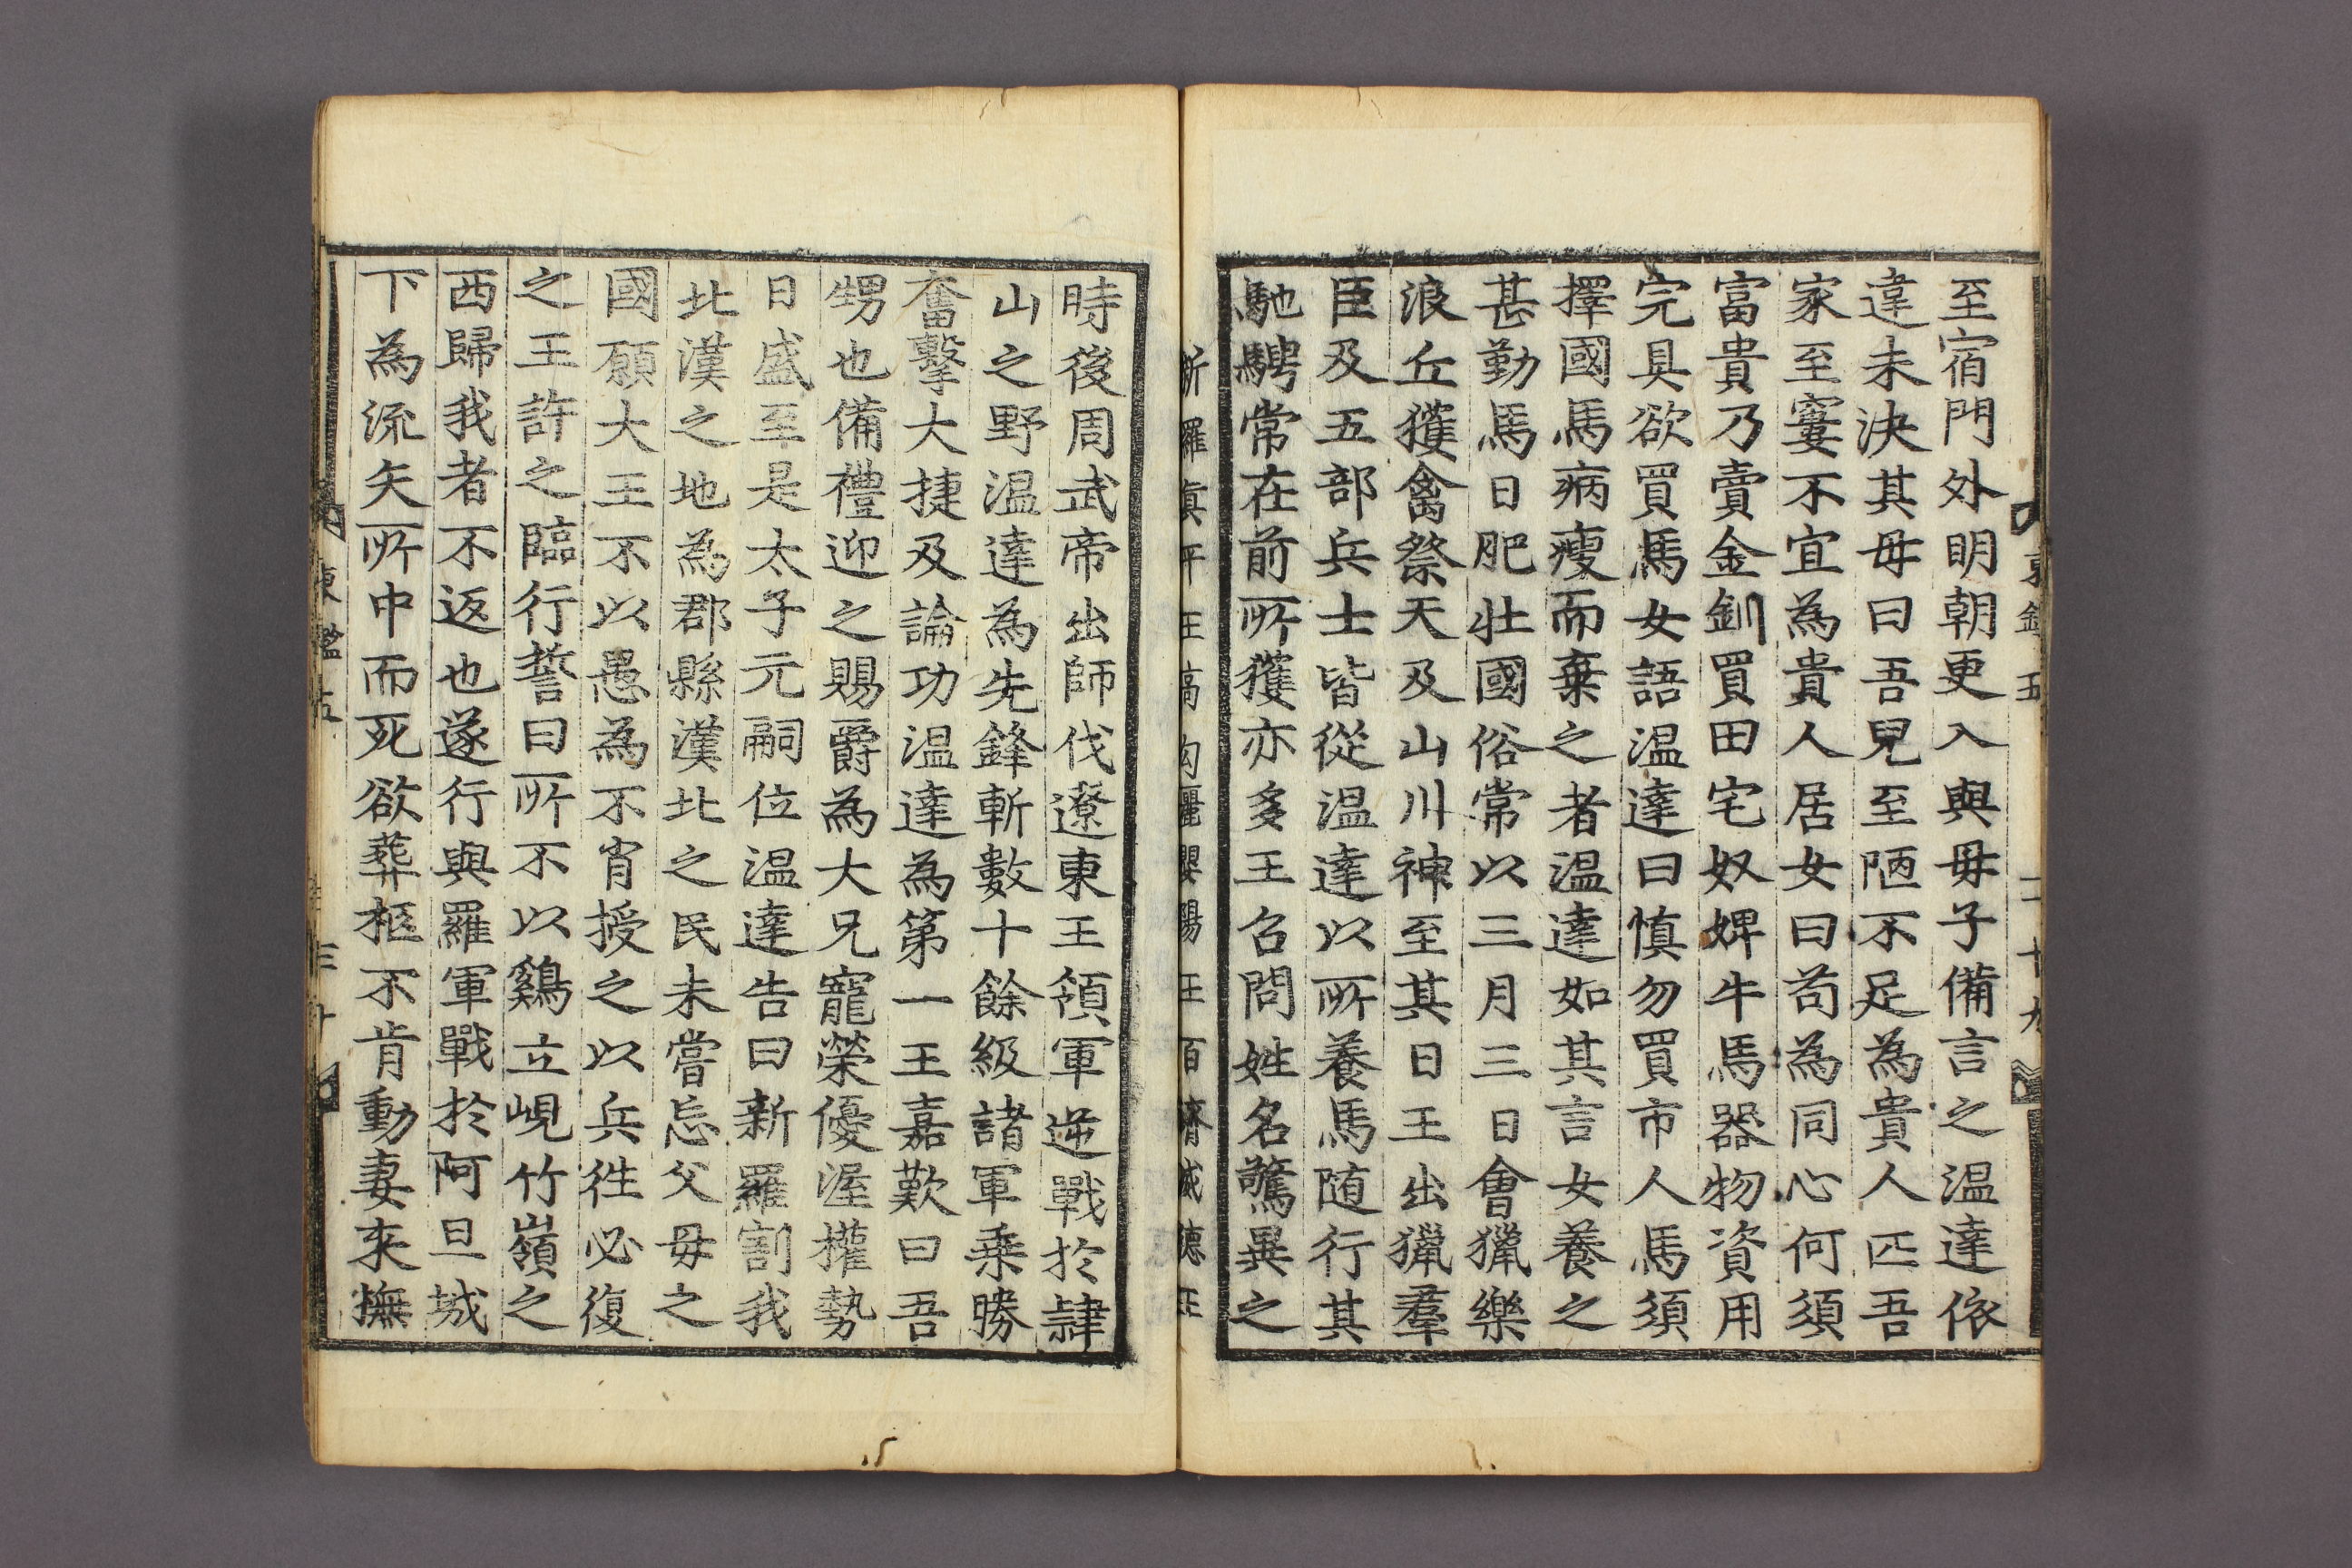 至宿門外明朝更入與毋子備言之溫達依
違未決其毋曰吾兒至陋不足為貴人匹吾
家至窶不宜為貴人居女曰苟為同心何須
富貴乃賣金釧買田宅奴婢牛馬器物資用
完具欲買馬女語溫達曰慎勿買市人馬須
擇國馬病瘦而棄之者溫達如其言女養之
甚勤馬日肥壯國俗常以三月三日會獵樂
浪丘獲禽祭天及山川神至其日王出獵羣
臣及五部兵士皆從溫達以所養馬随行其
馳騁常在前所獲亦多王召問姓名驚異之
新羅真平王高句麗嬰陽王百濟威德王
時後周武帝出師伐遼東王領軍逆戰於肄
山之野溫達為先鋒斬數十餘級諸軍乘勝
奮擊大捷及論功溫達為第一王嘉歎曰吾
甥也備禮迎之賜爵為大兄寵榮優渥權勢
日盛至是太子元嗣位溫達告曰新羅割我
北漢之地為郡縣漢北之民未嘗忘父毋之
國願大王不以愚為不肖授之以兵徃必復
之王許之臨行誓曰所不以鷄立峴竹嶺之
西歸我者不返也遂行與羅軍戰於阿旦城
下為流矢所中而死欲葬柩不肯動妻来撫